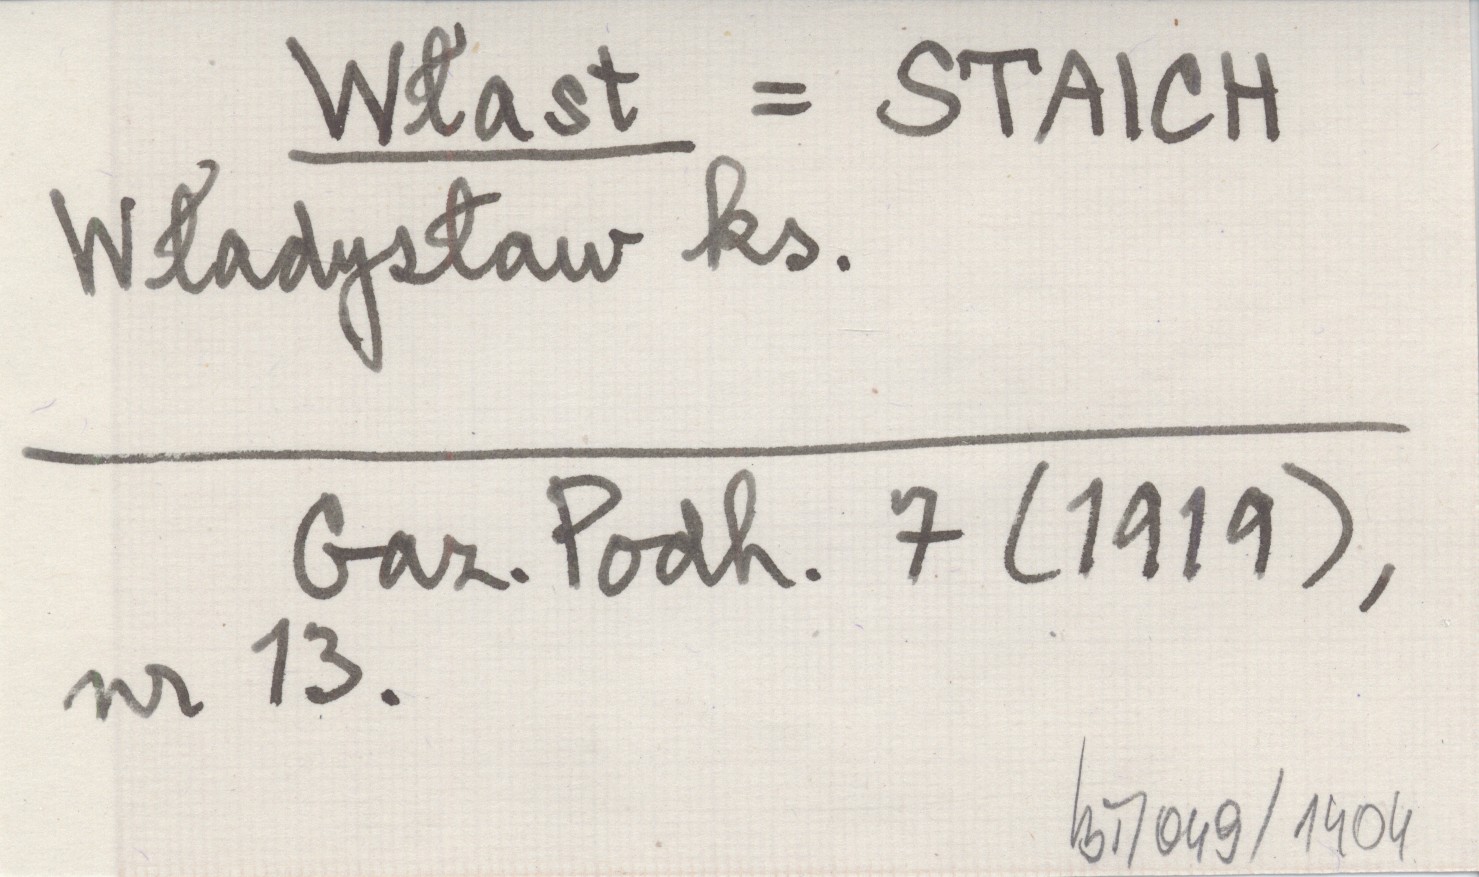 Włast = STAICH
Władysław ks.
Gaz. Podh. 7 (1919),
nr 13.
/049/1404